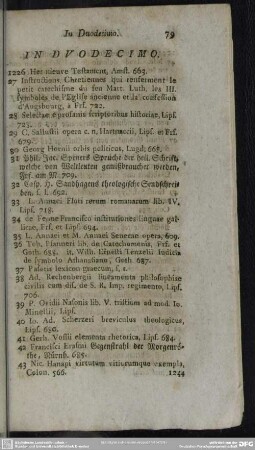 In Duodecimo. 79
IN DVODECIMO.
1226 Het nieuwe Testament, Amst. 663.
27 Instructions Chretiennes qui renferment le
petit catechisme du feu Mart. Luth. les III.
symboles de l'Eglise ancienne et la confession
d'Augsbourg, à Frf. 722.
28 Selectae e profanis scriptoribus historiae, Lips.
723.
29 C. Sallustii opera c. n. Lips. et Frf.
679.
30 Georg Hornii orbis politicus, Lugd. 667.
31 Phil. Jac. Speners Sprüche der heil. Schrift,
welche von Weltleuten gemißbraucht werden,
Frf. am M. 709.
32 Casp. H. Sandhagens theologische Sendschrei-
ben. s. l. 692.
33 L. Annaei Flori rerum romanarum lib. IV,
Lips. 718.
34 de Fenne Francisco institutiones linguae gal-
licae, Frf. et Lips. 694.
35 L. Annaei et M. Annaei Senecae opera, 609.
36 Tob. Pfanneri lib. de Catechumenis, Frf. et
Goth. 688. it. Wilh. Ernesti Tenzelii Iudicia
de symbolo Athanasiano, Goth. 687.
37 Pasoris lexicon graecum, s. a.
38 Ad. Rechenbergii lineamenta philosophiae
civilis cum diss. de S. R. Imp. regimento, Lips.
706.
39 P. Ovidii Nasonis lib. V. tristium ad mod. Io.
Minellii, Lips.
40 Io. Ad. Scherzeri breviculus theologicus,
Lips. 680.
41 Gerh. Vossii elementa rhetorica, Lips. 684.
42 Francisci Erasmi Gegenstrahl der Morgenrö-
the, Nürnb. 685.
43 Nic. Hanapi virtutum vitiorumque exempla,
Colon. 566.
1244